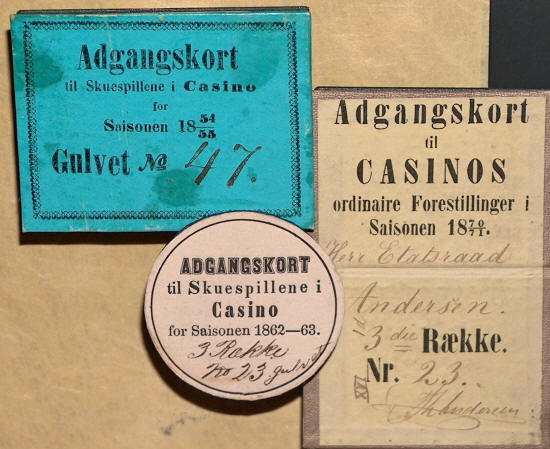 Adgangskort
til Skuespillene i Casino
for
Saisonen 18 54/55
Gulvet No 47.
Adgangskort
til
CASINOS
ordinaire Forestillinger i
Saisonen 18 70/71.
Herr Etatsraad
Andersen.
3 die Række.
Nr. 23.
XVI
ADGANGSKORT
til Skuespillene i
Casino
for Saisonen 1862—63.
3 Række
No 23 gulvet